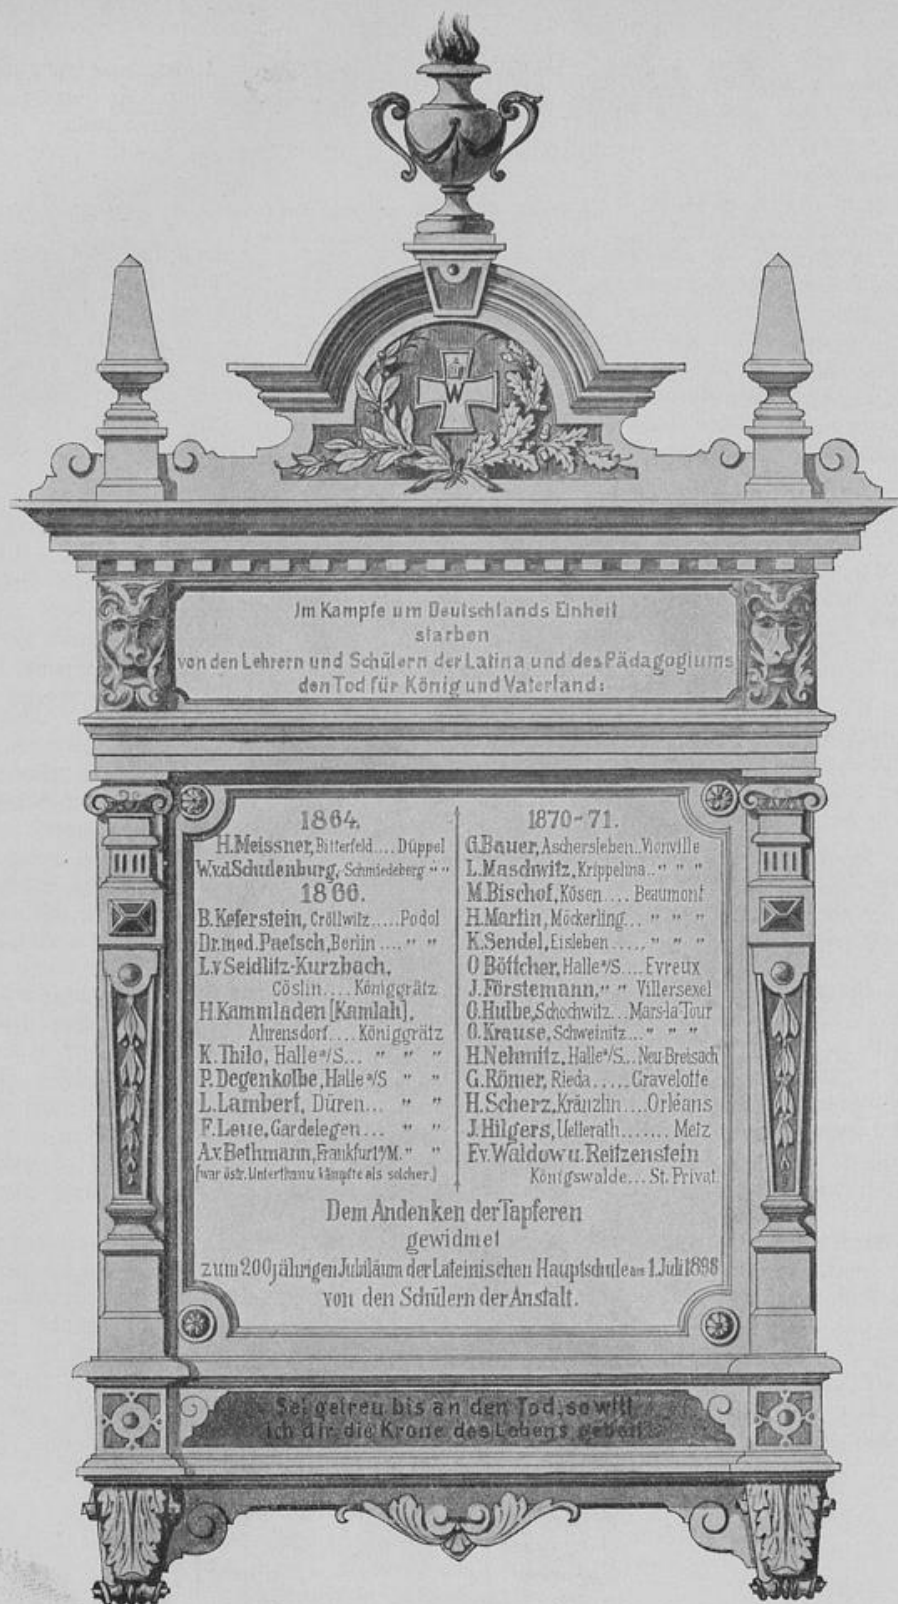 W
Im Kampfe um Deutschlands Einheit
starben
von den Lehrern und Schülern der Latina und des Pädagogiums
den Tod für König und Vaterland:
1864.
H. Meissner, Bitterfeld.... Düppel
W.v.d Schulenburg, Schmiedeberg " "
1866.
B. Keferstein, Cröllwitz..... Podol
Dr. med. Paetsch, Berlin .... " "
L.v Seidlitz-Kurzbach,
Cöslin.... Königgrätz
H. Kammladen [Kamlah],
Ahrensdorf.... Königgrätz
K. Thilo, Halle a/S... " " "
P. Degenkolbe, Halle a/S " "
L. Lambert, Düren... " "
F. Leue, Gardelegen... " "
A.v. Bethmann, Frankfurt a/M. " "
[war östr. Unterthan u. kämpfte als solcher.]
1870-71.
G. Bauer, Aschersleben.. Vionville
L. Maschwitz, Krippehna.. " " "
M. Bischof, Kösen .... Beaumont
H. Martin, Möckerling... " " "
K. Sendel, Eisleben ..... " " "
O Böttcher, Halle a/S.... Evreux
J. Förstemann, " " Villersexel
O. Hulbe, Schochwitz... Mars-la-Tour
O. Krause, Schweinitz... " " "
H. Nehmitz, Halle a/S... Neu Breisach
G. Römer, Rieda ..... Gravelotte
H. Scherz, Kränzlin.... Orléans
J. Hilgers, Uetterath....... Metz
F.v. Waldow u. Reitzenstein
Königswalde... St. Privat.
Dem Andenken der Tapferen
gewidmet
zum 200jährigen Jubiläum der Lateinischen Hauptschule am 1. Juli 1898
von den Schülern der Anstalt.
Sei getreu bis an den Tod, so will
ich dir die Krone des Lebens geben.